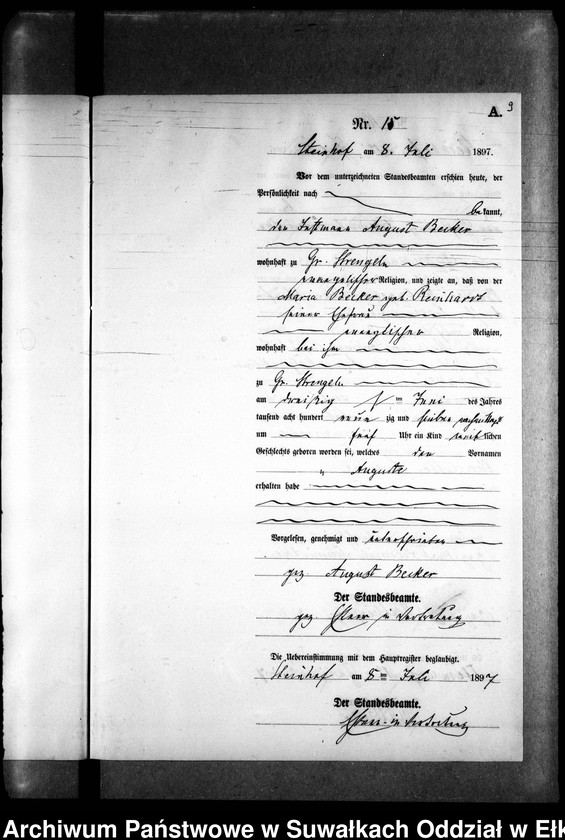 A. 9
Nr. 15
Steinhof am 8. Juli 1897.
Vor dem unterzeichneten Standesbeamten erschien heute, der
Persönlichkeit nach
bekannt,
den Instmann August Becker
wohnhaft zu Gr. Strengeln
evangelischer Religion, und zeigte an, daß von der
Maria Becker geb. Reinhardt
seiner Ehefrau
evanglischer Religion,
wohnhaft bei ihm
zu Gr. Strengeln
am dreißig sten Juni des Jahres
tausend acht hundert neun zig und sieben nachmittags
um fünf Uhr ein Kind weiblichen
Geschlechts geboren worden sei, welches den Vornamen
Auguste
erhalten habe
Vorgelesen, genehmigt und unterschrieben
gez August Becker
Der Standesbeamte.
gez. in Vertretung
Die Uebereinstimmung mit dem Hauptregister beglaubigt.
Steinhof am 8ten Juli 1897
Der Standesbeamte.
in Vertretung
Archiwum Państwowe w Suwałkach Oddział w Ełk